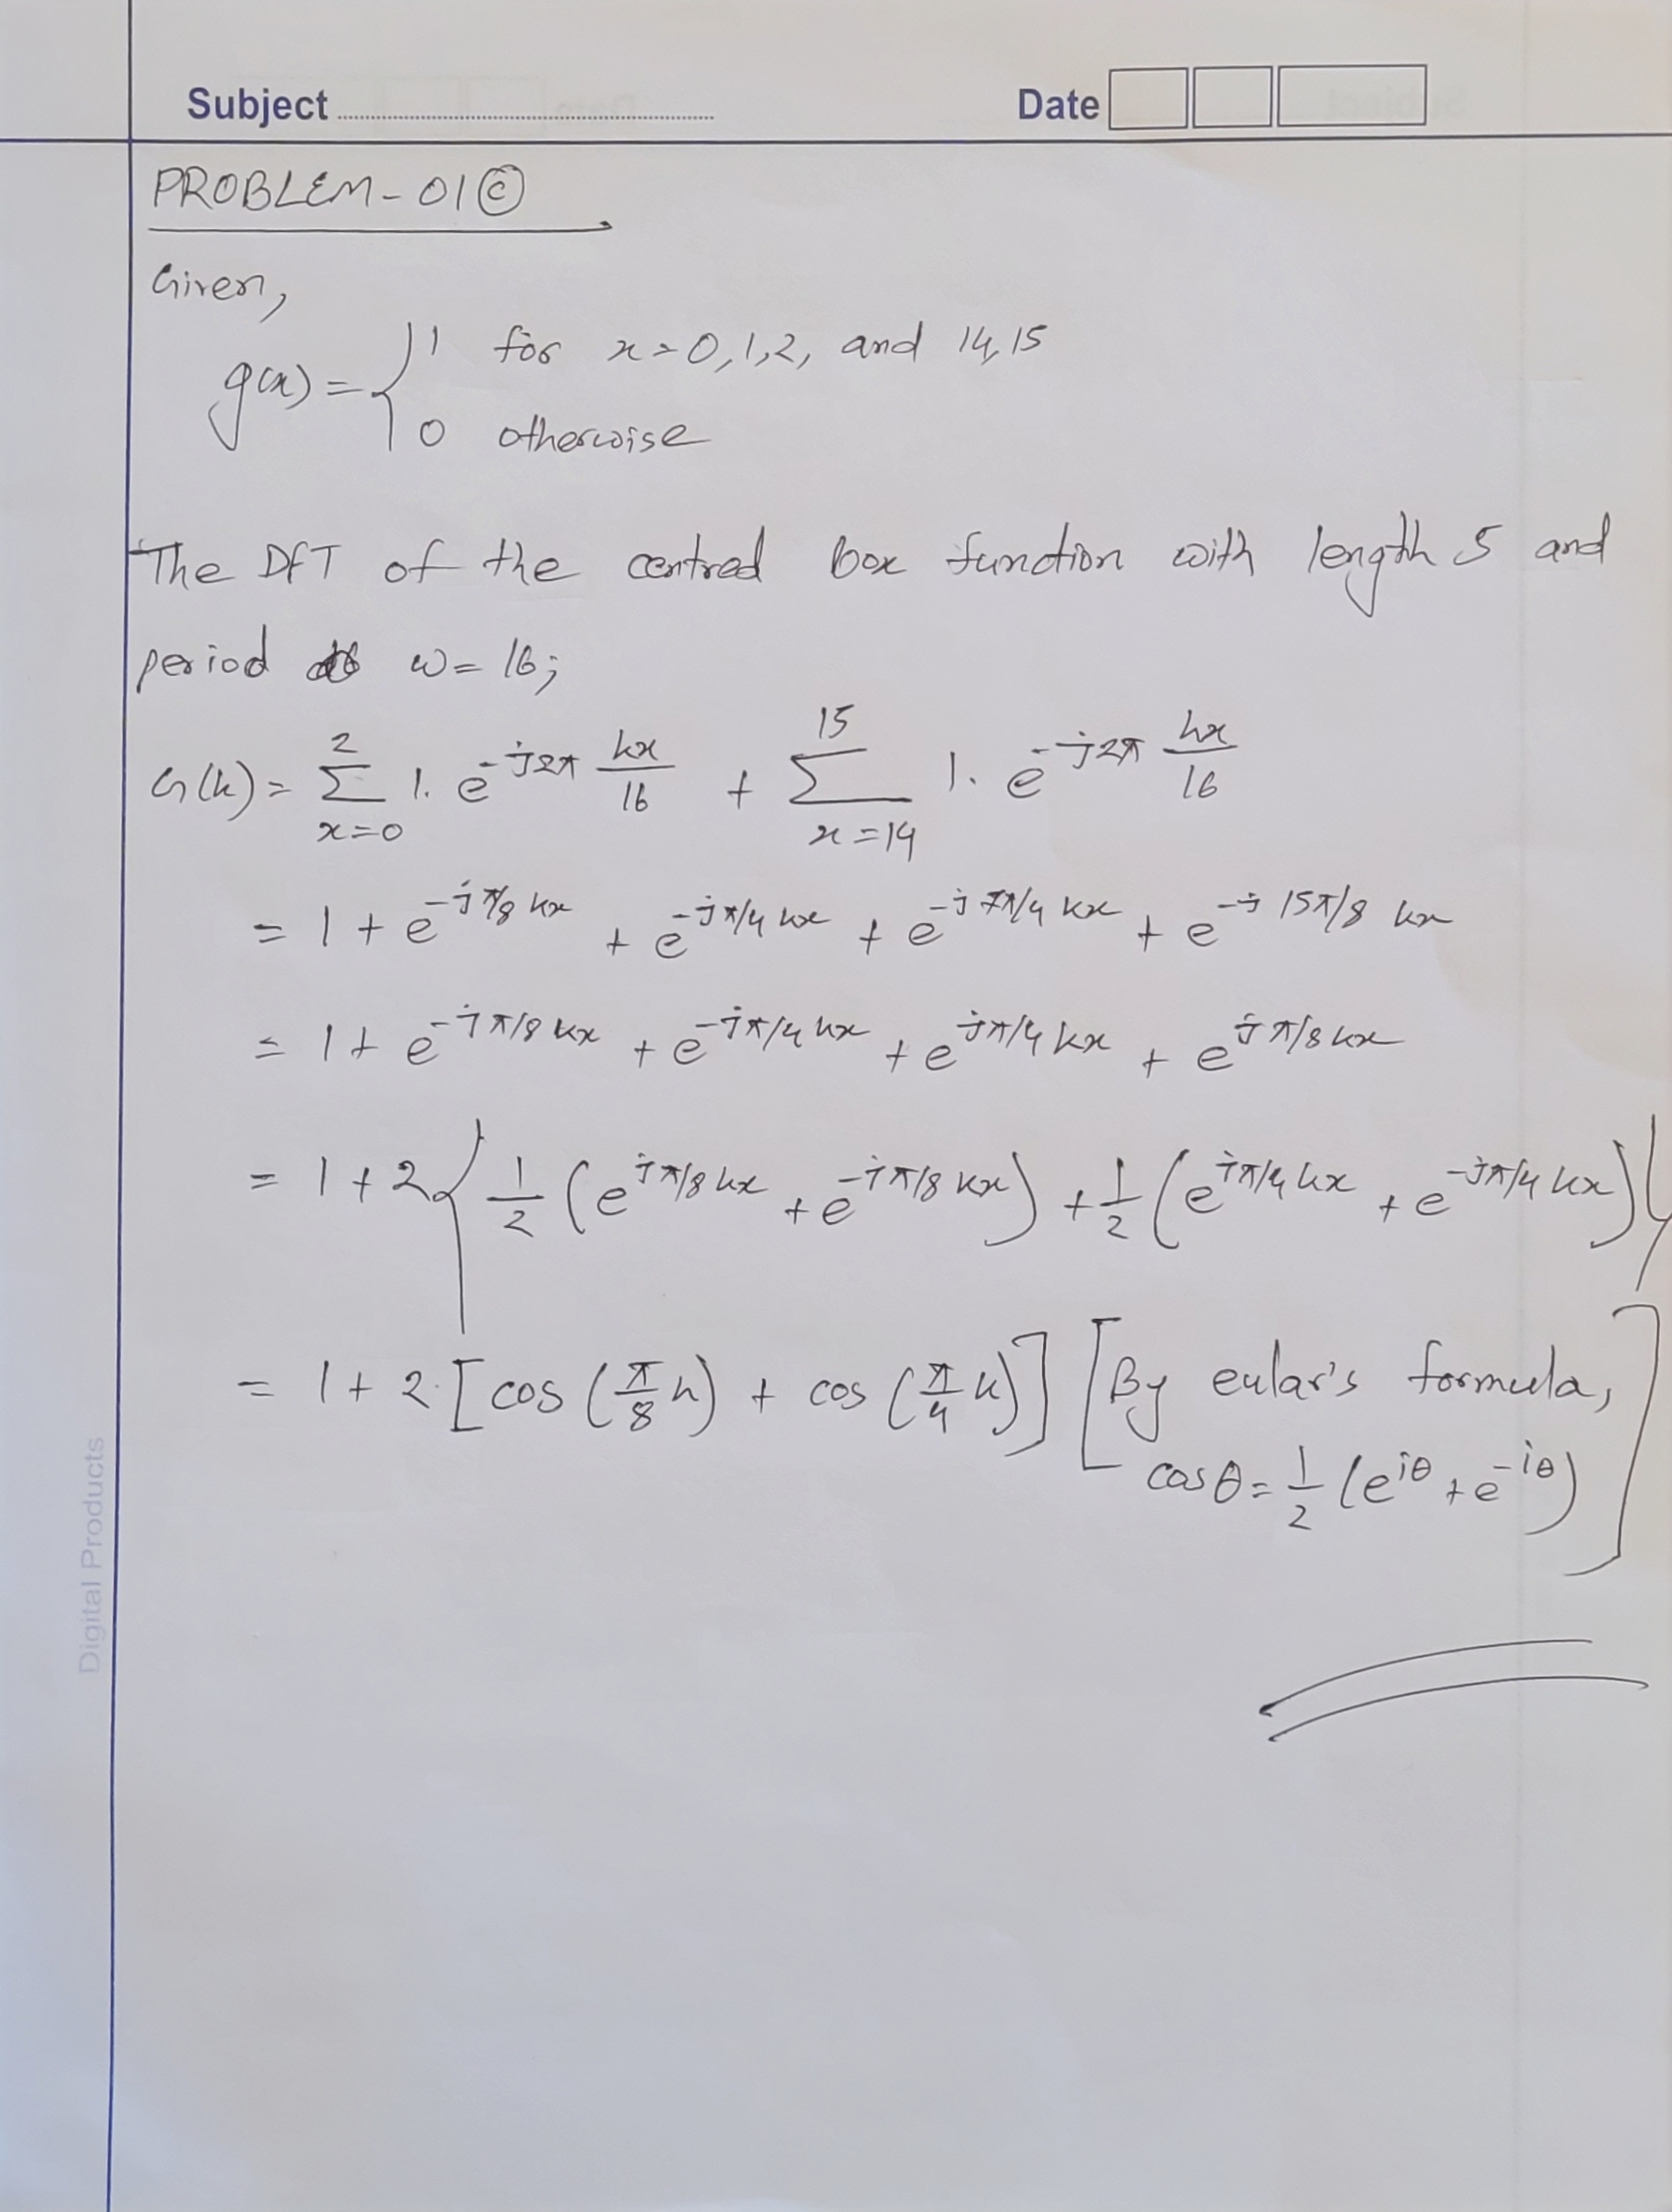 Subject
Date
PROBLEM-01 ©
Given,
g(x) = { 1 for x = 0,1,2, and 14,15
0 otherwise
The DFT of the centred box function with length 5 and
period w = 16;
G(k) = Σ_{x=0}^{2} 1. e^{-j2π kx/16} + Σ_{x=14}^{15} 1. e^{-j2π kx/16}
= 1 + e^{-jπ/8 kx} + e^{-jπ/4 kx} + e^{-j7π/4 kx} + e^{-j 15π/8 kx}
= 1 + e^{-jπ/8 kx} + e^{-jπ/4 kx} + e^{jπ/4 kx} + e^{jπ/8 kx}
= 1 + 2 { 1/2 (e^{jπ/8 kx} + e^{-jπ/8 kx}) + 1/2 (e^{jπ/4 kx} + e^{-jπ/4 kx}) }
= 1 + 2. [cos (π/8 k) + cos (π/4 k)] [By eular's formula,
cos θ = 1/2 (e^{iθ} + e^{-iθ}) ]
Digital Products